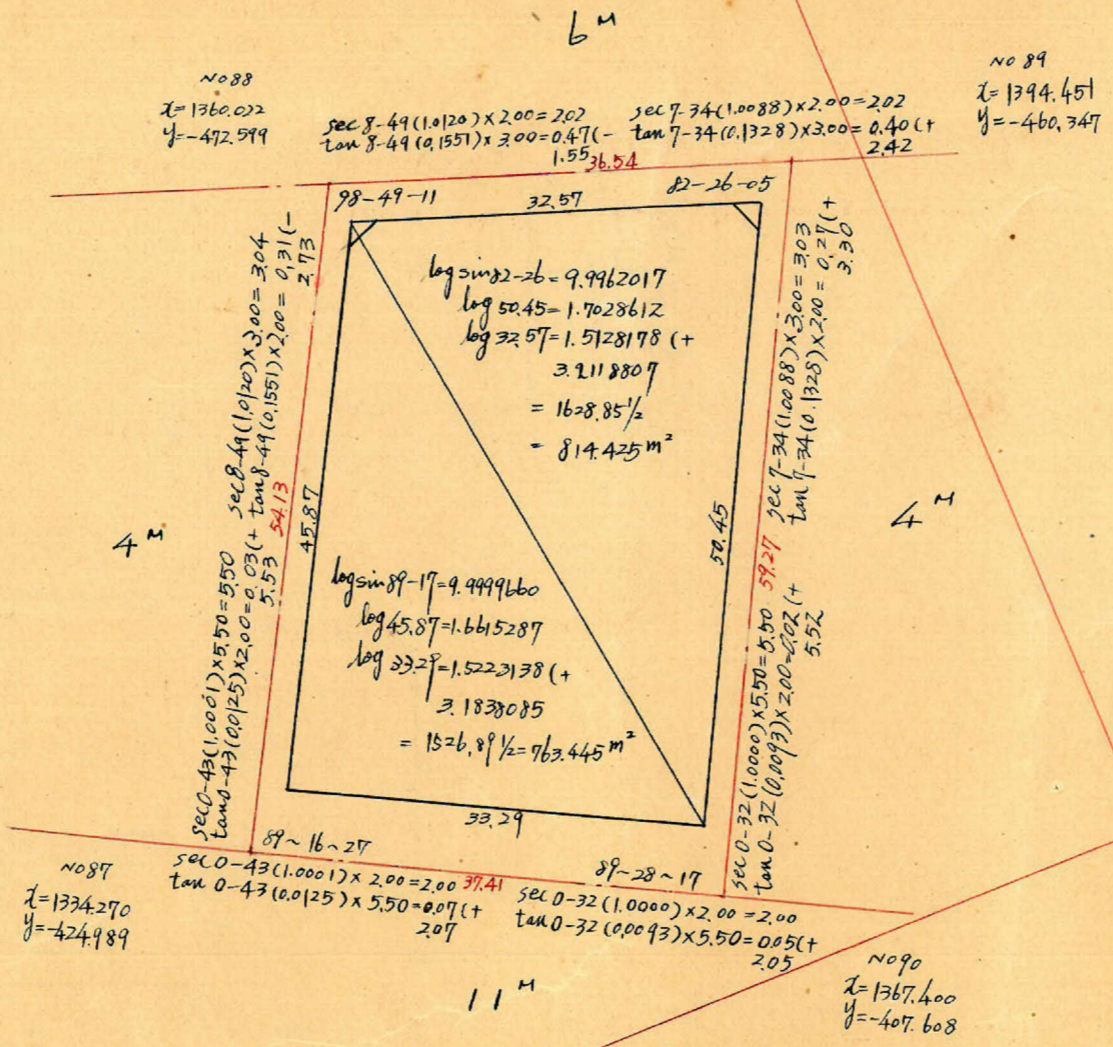 6 M
NO 88
x=1360.022
y=-472.599
NO 89
x=1394.451
y=-460.347
sec 8-49(1.0120)×2.00=2.02
tan 8-49(0.1551)×3.00=0.47(-
1.55
sec 7-34(1.0088)×2.00=2.02
tan 7-34(0.1328)×3.00=0.40(+
2.42
36.54
98-49-11
32.57
82-26-05
sec 8-49(1.0120)×3.00=3.04
tan 8-49(0.1551)×2.00=0.31(-
2.73
54.13
45.87
sec 0-43(1.0001)×5.50=5.50
tan 0-43(0.0125)×2.00=0.03(+
5.53
4 M
log sin 82-26=9.9962017
log 50.45=1.7028612
log 32.57=1.5128178(+
3.2118807
=1628.85 1/2
=814.425 m²
log sin 89-17=9.9999660
log 45.87=1.6615287
log 33.29=1.5223138(+
3.1838085
=1526.89 1/2=763.445 m²
50.45
59.27
sec 7-34(1.0088)×3.00=3.03
tan 7-34(0.1328)×2.00=0.27(+
3.30
sec 0-32(1.0000)×5.50=5.50
tan 0-32(0.0093)×2.00=0.02(+
5.52
4 M
33.29
89~16~27
89~28~17
sec 0-43(1.0001)×2.00=2.00
tan 0-43(0.0125)×5.50=0.07(+
2.07
37.41
sec 0-32(1.0000)×2.00=2.00
tan 0-32(0.0093)×5.50=0.05(+
2.05
NO 87
x=1334.270
y=-424.989
NO 90
x=1367.400
y=-407.608
11 M